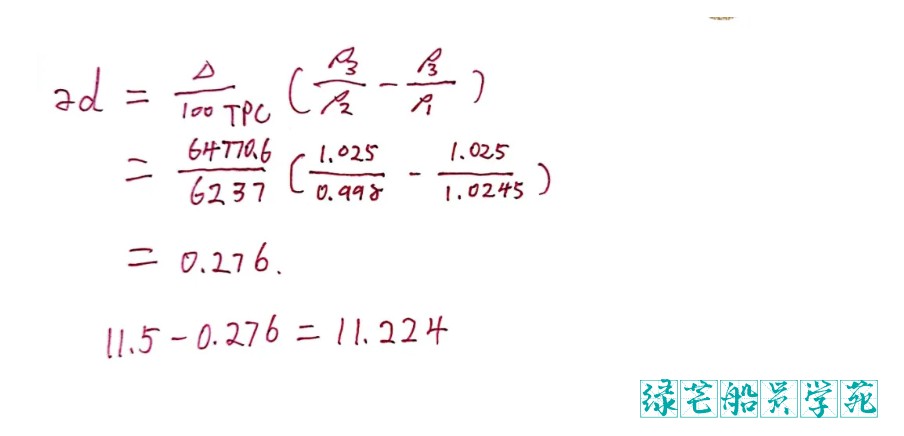 ∂d = Δ/100 TPC (ρ3/ρ2 - ρ3/ρ1)
= 64770.6/6237 (1.025/0.998 - 1.025/1.0245)
= 0.276.
11.5 - 0.276 = 11.224
绿芒船员学苑